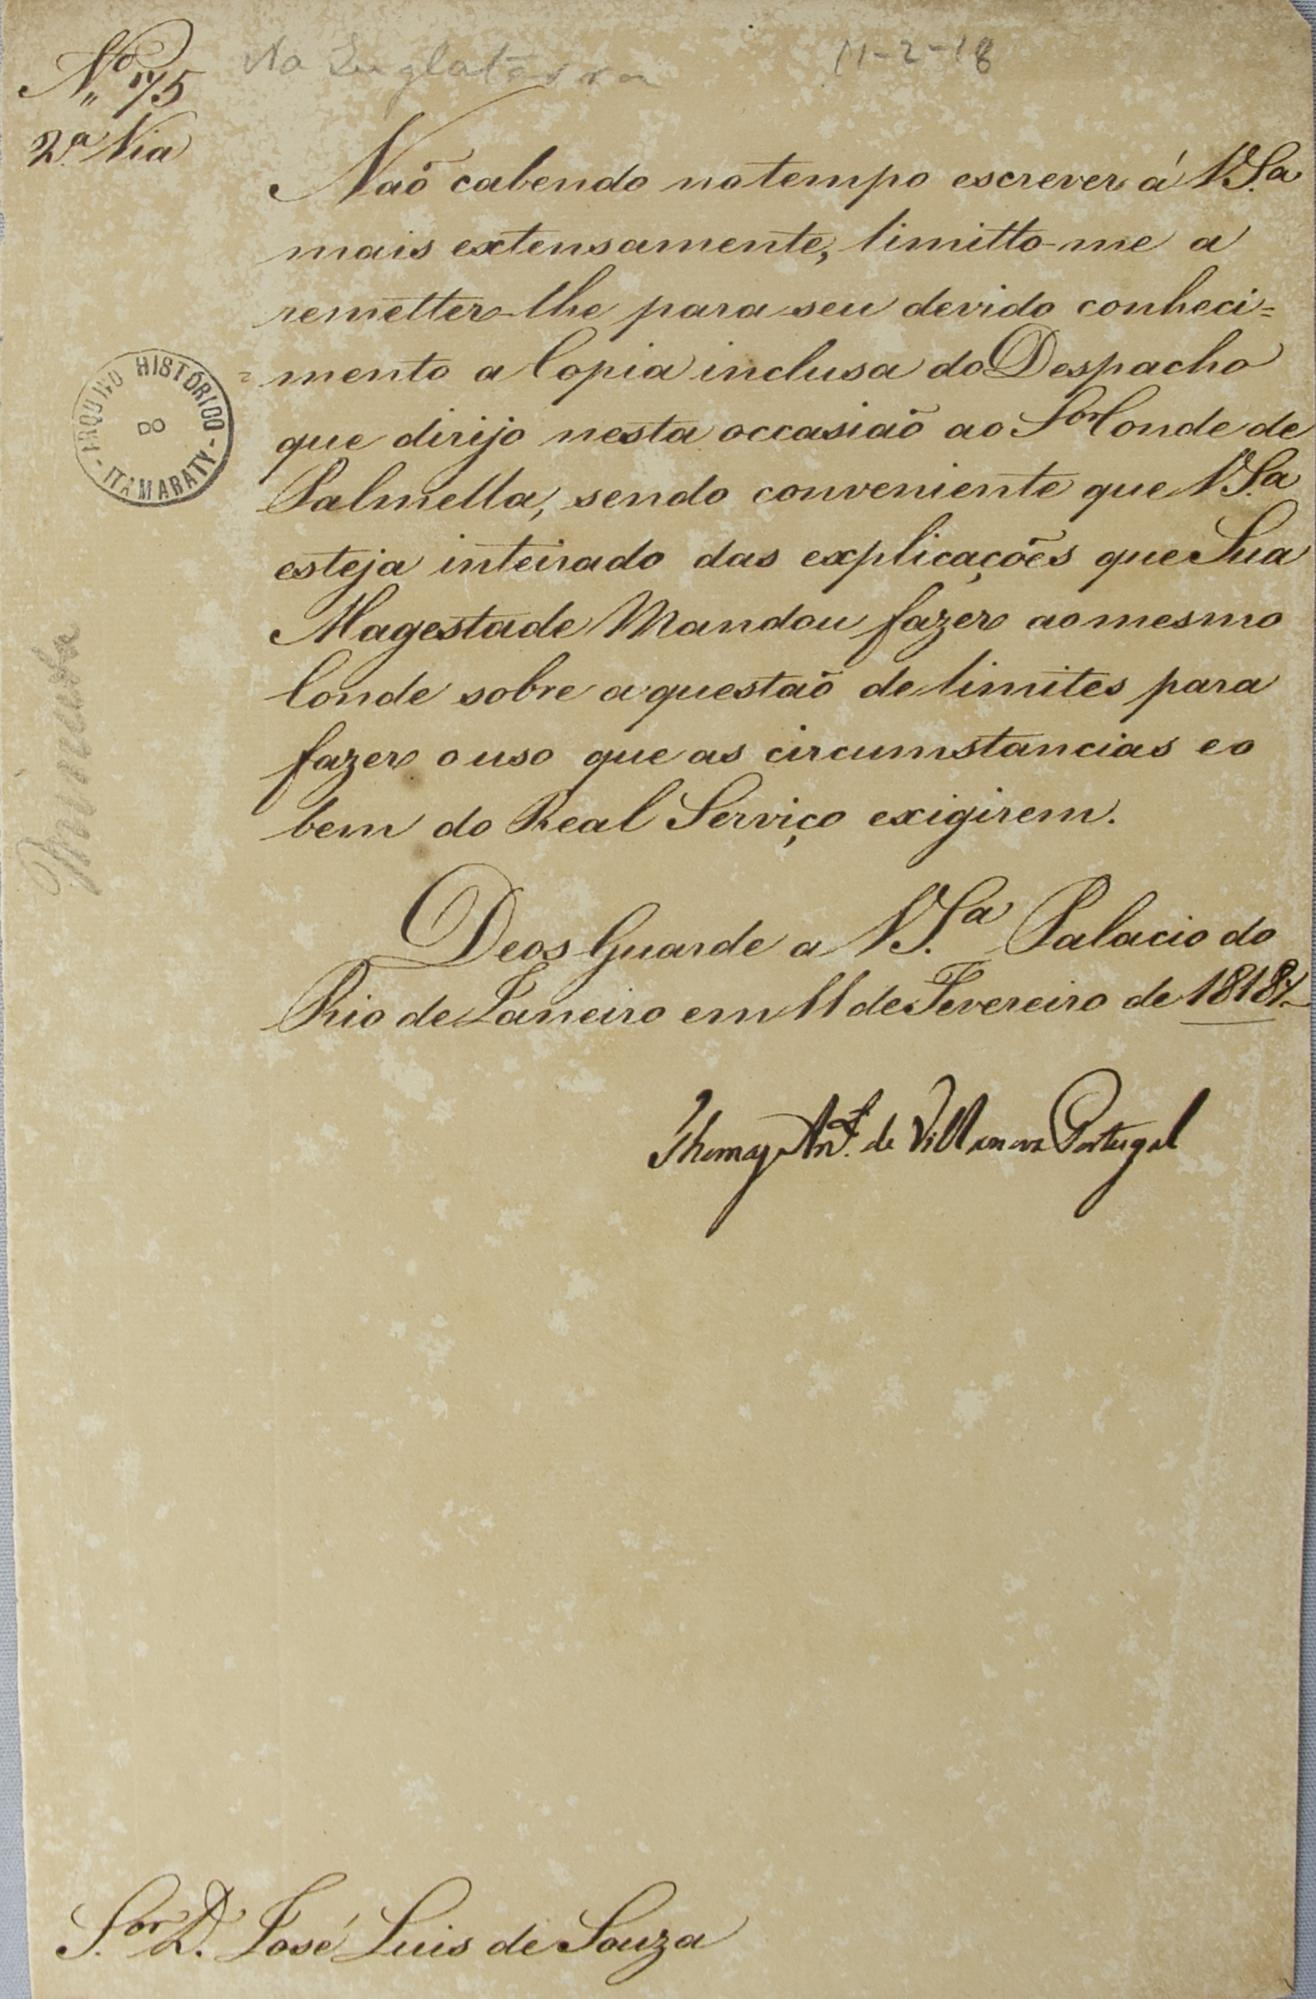 Nº 175
2.ª Via
Na Inglaterra
11-2-18
Naõ cabendo no tempo escrever á V.S.ª
mais extensamente, limitto-me a
remetter-lhe para seu devido conheci=
=mento a Copia inclusa do Despacho
que dirijo nesta occasiaõ ao S.or Conde de
Palmella, sendo conveniente que V.S.ª
esteja inteirado das explicações que Sua
Magestade Mandou fazer ao mesmo
Conde sobre a questaõ de limites para
fazer o uso que as circumstancias e o
bem do Real Serviço exigirem.
Deos Guarde a V.S.ª Palacio do
Rio de Janeiro em 11 de Fevereiro de 1818
Thomaz Ant.º de Villanova Portugal
S.or D. José Luis de Souza
ARQUIVO HISTÓRICO
- ITAMARATY -
Minuta